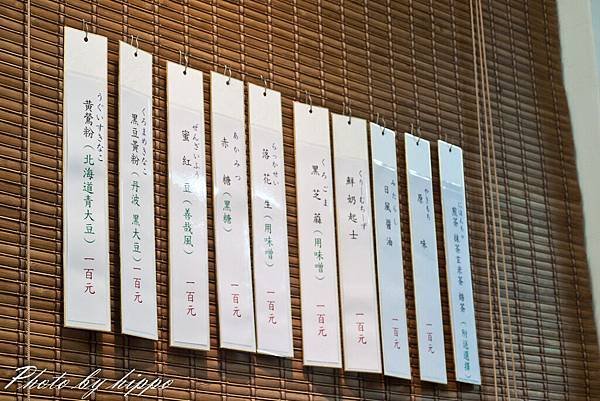 うぐいすきなこ
黃鶯粉（北海道青大豆）一百元
くろまめきなこ
黑豆黃粉（丹波 黑大豆）一百元
ぜんざいふう
蜜紅豆（善哉風）一百元
あかみつ
赤糖（黑糖）一百元
らっかせい
落花生（用味噌）一百元
くろごま
黑芝蔴（用味噌）一百元
くりーむちーず
鮮奶起士 一百元
みたらし
日風醬油 一百元
やきもち
原味 一百元
にほんちゃ
煎茶 抹茶 玄米茶 焙茶（附送選擇）
Photo by hippo